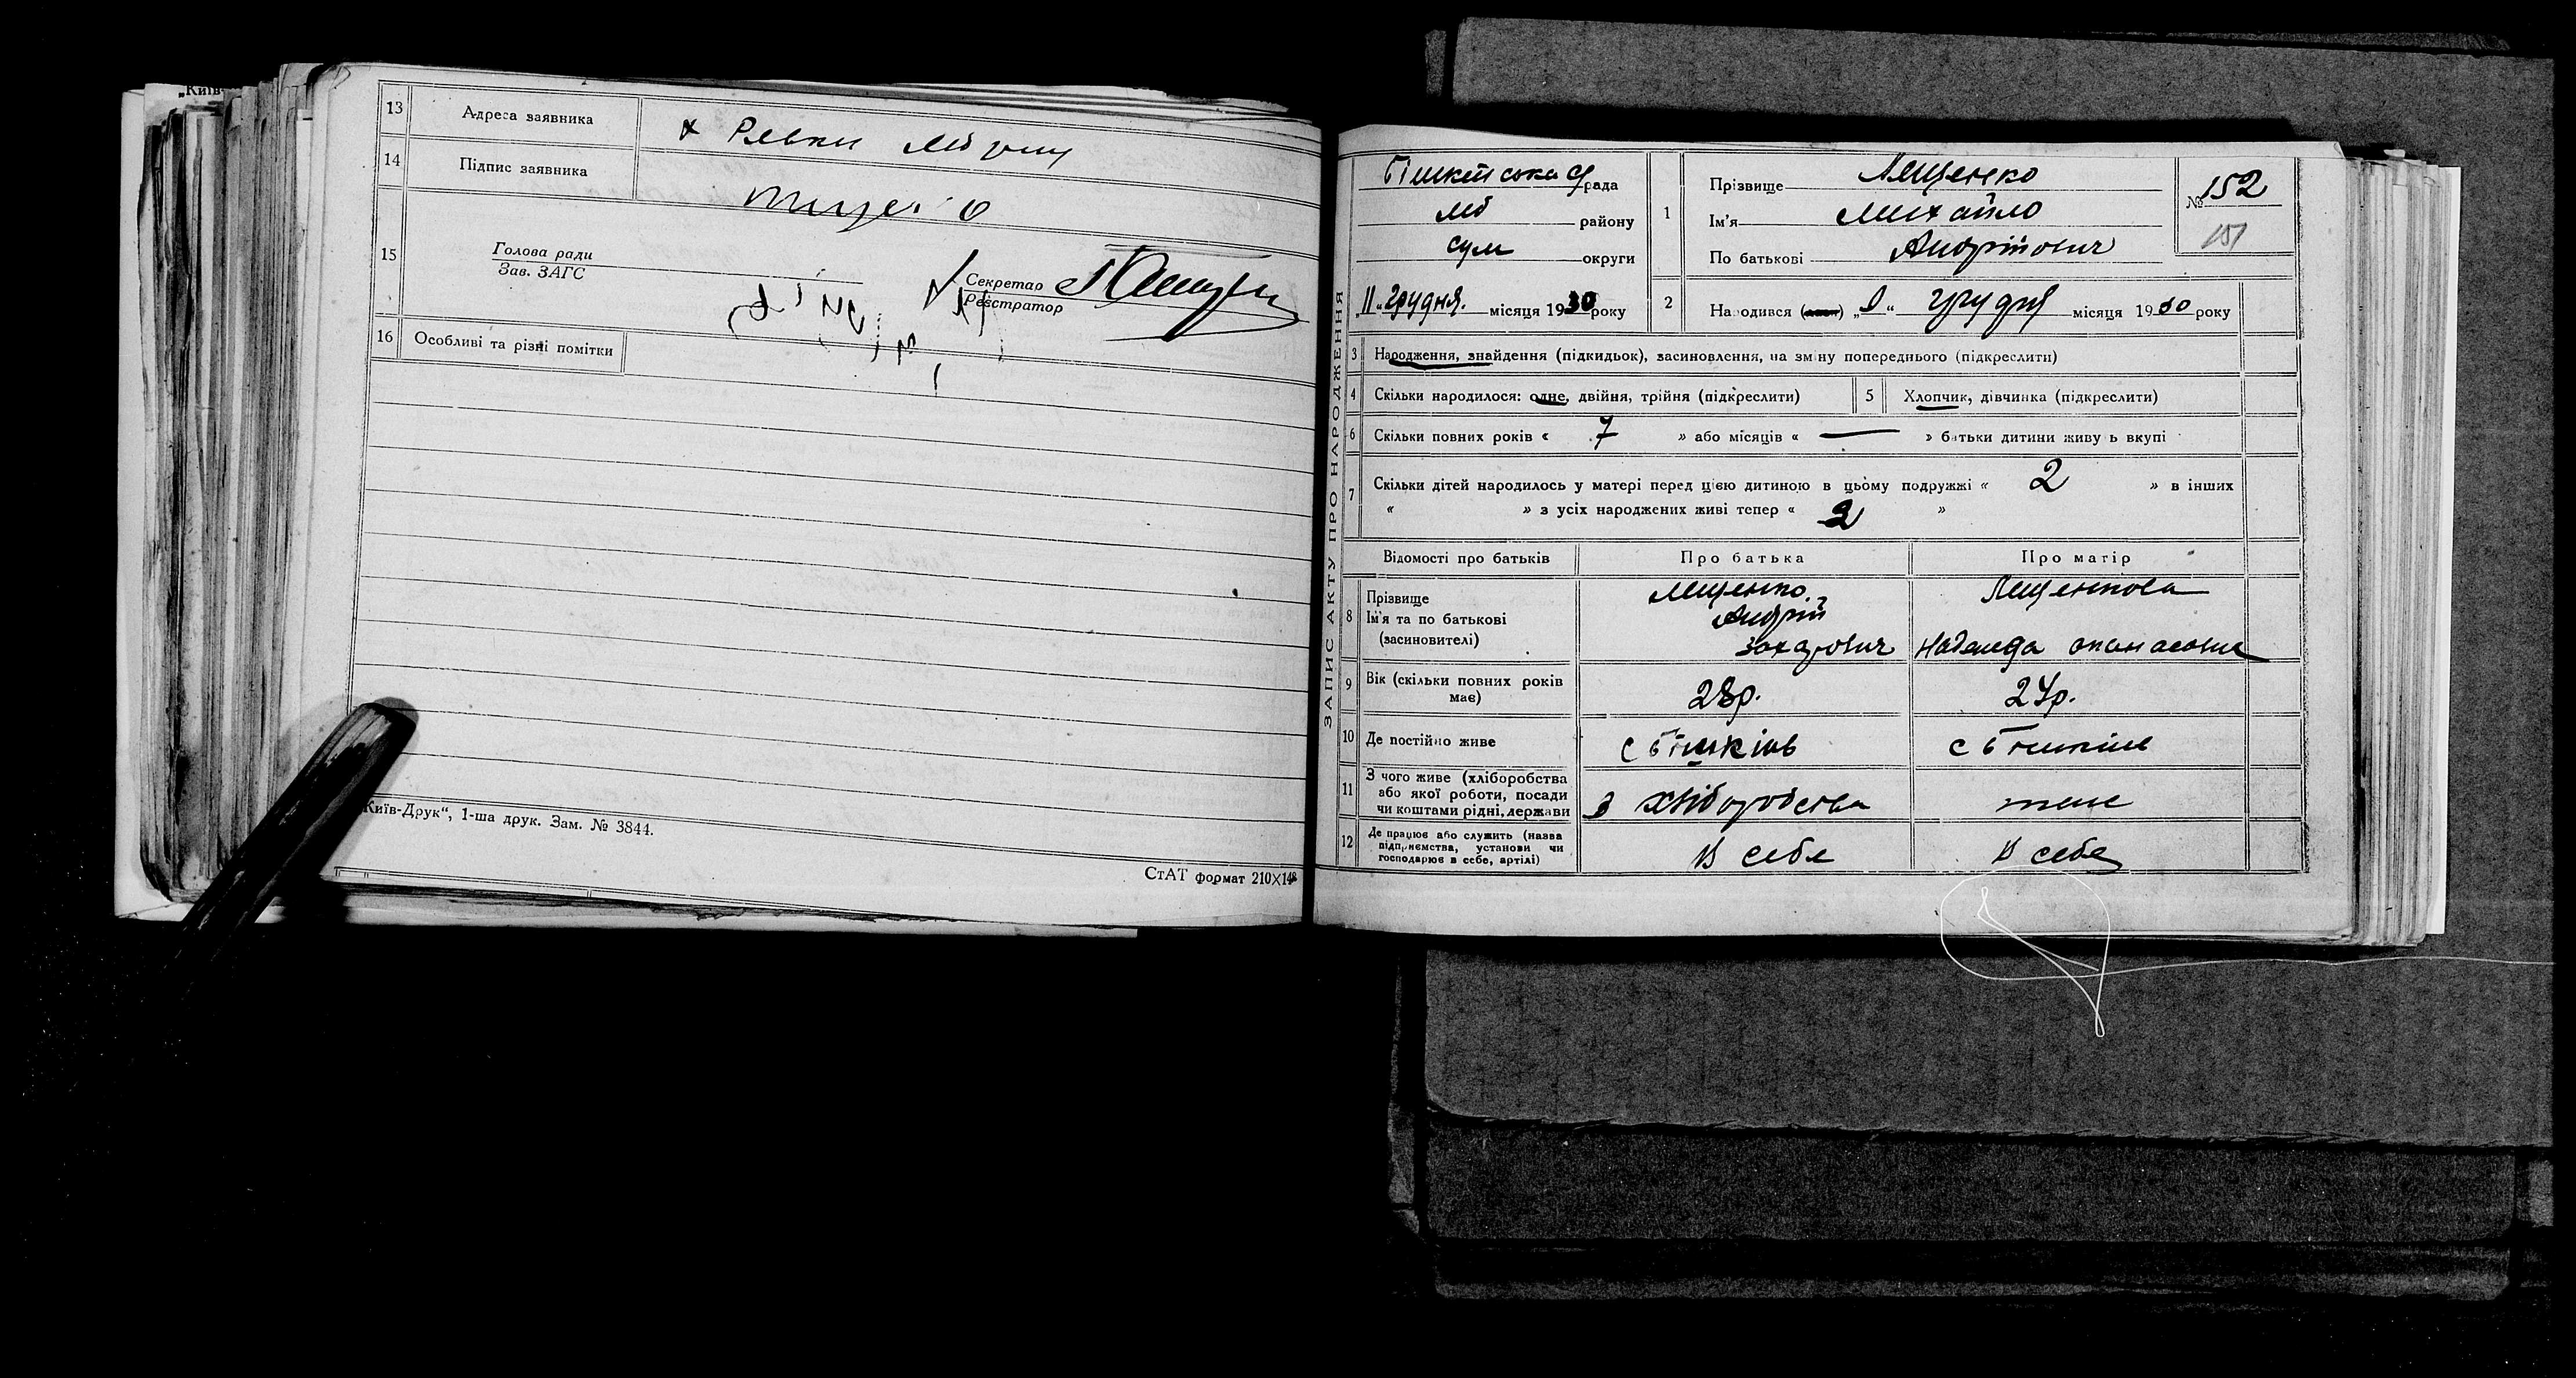 „Київ-
13 Адреса заявника х Ревки Лб
14 Підпис заявника
15 Голова ради
Зав. ЗАГС
Секретар
Реєстратор
16 Особливі та різні помітки
Київ-Друк“, 1-ша друк. Зам. № 3844.
СтАТ формат 210×148
ЗАПИС АКТУ ПРО НАРОДЖЕННЯ
Бишкінська с/рада
Лб району
Сум округи
„11“ грудня. місяця 1930 року
1 Прізвище Лященко
Ім'я Михайло
По батькові Андрійович
№ 152
151
2 Народився (лась) „9“ грудня місяця 1930 року
3 Народження, знайдення (підкидьок), засиновлення, на зміну попереднього (підкреслити)
4 Скільки народилося: одне, двійня, трійня (підкреслити)
5 Хлопчик, дівчинка (підкреслити)
6 Скільки повних років « 7 » або місяців « — » батьки дитини живуть вкупі
7 Скільки дітей народилось у матері перед цією дитиною в цьому подружжі « 2 » в інших
« » з усіх народжених живі тепер « 2 »
Відомості про батьків Про батька Про матір
8 Прізвище
Ім'я та по батькові
(засиновителі)
Лященко
Андрій
Захарович
Лященкова
Надежда
9 Вік (скільки повних років
має)
28р. 24р.
10 Де постійно живе с Бишкінь с Бишкінь
11 З чого живе (хліборобства
або якої роботи, посади
чи коштами рідні, держави
з хліборобства теж
12 Де працює або служить (назва
підприємства, установи чи
господарює в себе, артілі)
В себе В себе